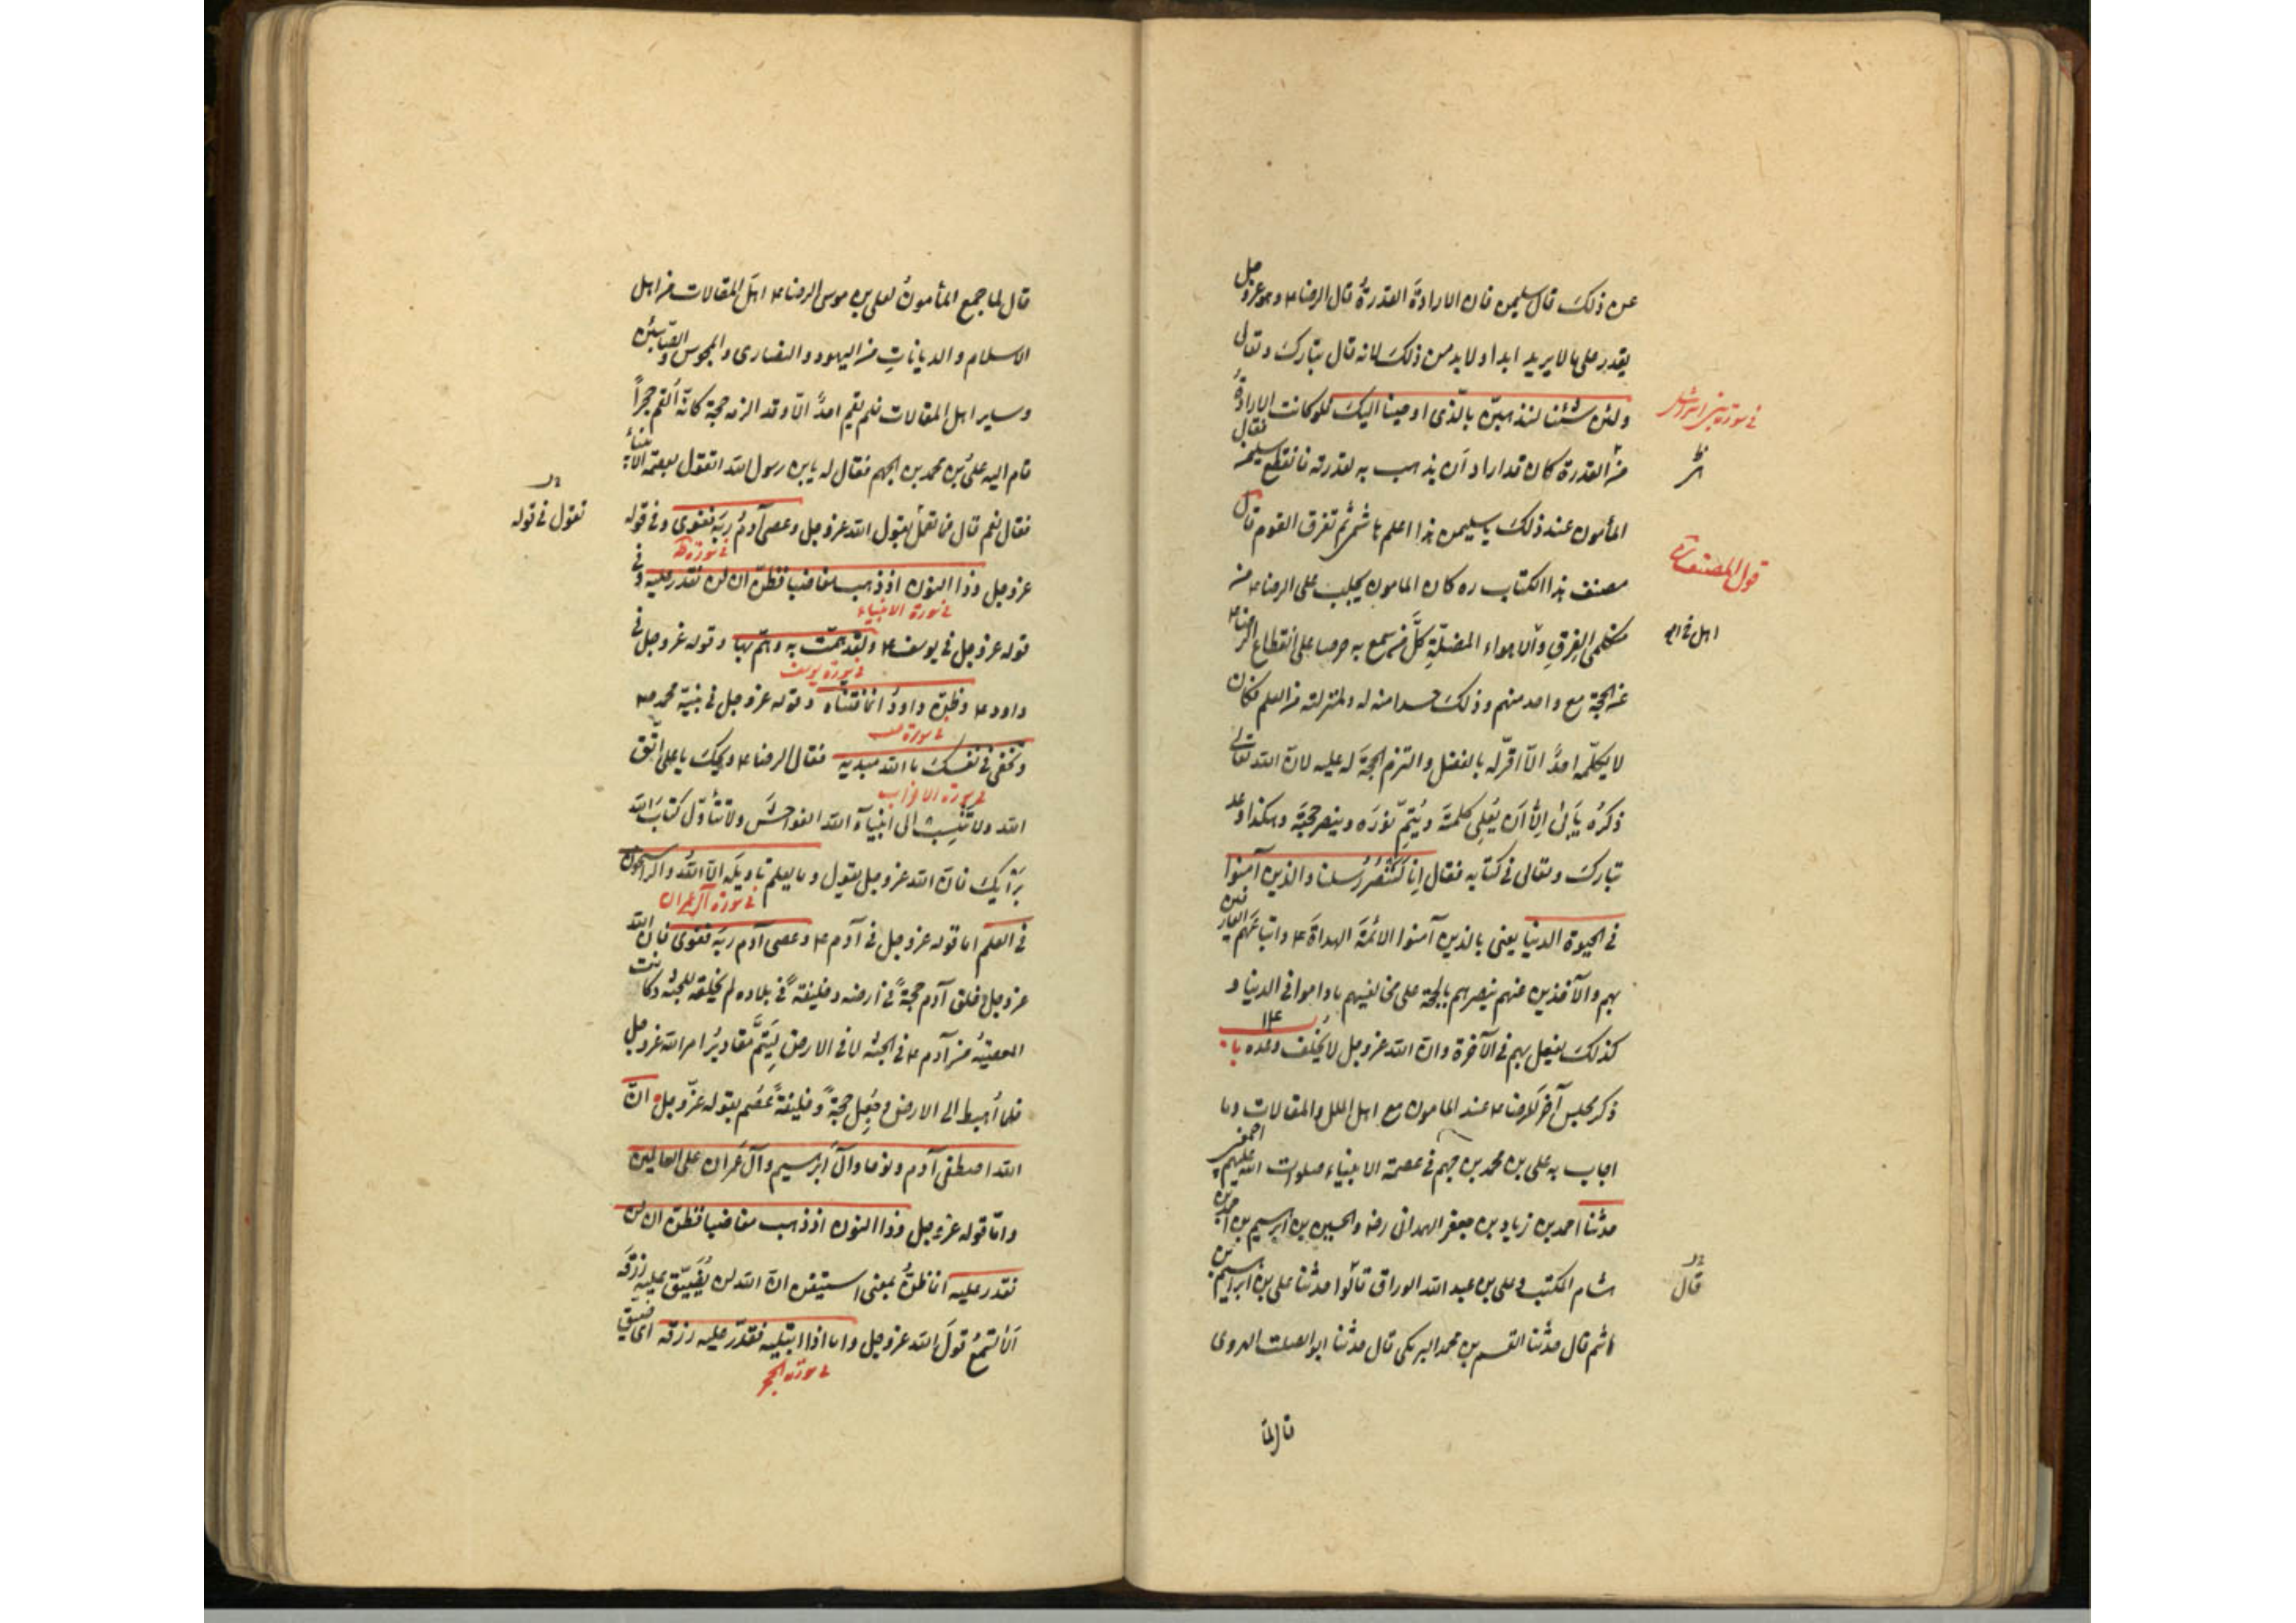 عن ذلك قال سليمن فان الارادةَ القدرةُ قال الرضا ء وهو عزوجل
يقدر على ما لا يريد ابدا ولا بد من ذلك لانه قال تبارك وتعالى
ولئن شئنا لنذهبنّ بالّذى اوحينا اليك فلو كانت الارادةُ
فى سورة بنى اسرائيل
من القدرة كان قد اراد اَن يذهب به لقدرته فانقطع سليمن فقال
المأمون عند ذلك يا سليمن هذا اعلم هاشمى ثم تفرق القوم قال
قول المصنف ره
مصنف هذا الكتاب ره كان المامون يجلب على الرضا ء من
متكلمى الفِرقِ والاهواء المضلّةِ كلَّ من سمع به حرصا على انقطاع الرضا ء
عن الحجة مع واحد منهم وذلك حسدا منه له ولمنزلته من العلم فكان
لا يكلّمه احدٌ الّا اقرّ له بالفضل والتزم الحجةَ له عليه لانّ الله تعالى
ذكرُه يَأبى اِلّا اَن يُعلى كلمتَه ويُتِمّ نورَه وينصر حجتَه وهكذا وعد
تبارك وتعالى فى كتابه فقال اِنا لَنَنْصُرُ رُسلنا والذين آمنوا
فى الحيوة الدنيا يعنى بالذين آمنوا الائمّةَ الهداةَ ء واتباعَهم العارفين
بهم والآخذين عنهم ينصرهم بالحجّة على مخالفيهم ما داموا فى الدنيا و
كذلك يفعل بهم فى الآخرة وانّ الله عزوجل لا يُخلف وعده باب ١٤
ذكر مجلس آخر للرضا ء عند المامون مع اهل الملل والمقالات وما
اجاب به على بن محمد بن جهم فى عصمة الانبياء صلوات الله عليهم اجمعين
حدثنا احمد بن زياد بن جعفر الهمدانى رضه والحسين بن ابراهيم بن احمد بن
هشام المكتب وعلى بن عبد الله الوراق قالوا حدثنا على بن ابراهيم بن
قال
هاشم قال حدثنا القسم بن محمد البرمكى قال حدثنا ابوالصلت الهروى
قال لمّا
قال لما جمع المأمونُ لعلى بن موسى الرضا ء اهلَ المقالات من اهل
الاسلام والديانات من اليهود والنصارى والمجوس والصّابئين
وساير اهل المقالات فلم يقم احدٌ الّا وقد الزمه حجة كانّه اُلقم حجراً
قام اليه علىُ بن محمد بن الجهم فقال له يا بن رسول الله اتقول بعصمة الانبياء
فقال نعم قال فما تعمل بقول الله عزوجل وعصى آدمُ ربَّه فغوى وفى قوله
تقول فى قوله
فى سورة طه
عزوجل وذا النون اذ ذهب مغاضبا فظنّ ان لن نقدر عليه وفى
فى سورة الانبياء
قوله عزوجل فى يوسف ء ولقد همّت به وهمّ بها وقوله عزوجل فى
فى سورة يوسف
داود ء وظنّ داودُ انما فتنّاه وقوله عزوجل فى نبيّه محمد ص
فى سورة ص
وتخفى فى نفسك ما الله مبديه فقال الرضا ء ويحك يا على اتّق
فى سورة الاحزاب
الله ولا تنسب الى انبيآء الله الفواحشَ ولا تتأوّل كتابَ الله
برَأيك فانّ الله عزوجل يقول وما يعلم تاويلَه الّا اللّهُ والراسخون
فى سورة آل عمران
فى العلم اما قوله عزوجل فى آدم ء وعصى آدم ربّه فغوى فانّ الله
عزوجل خلق آدم حجةً فى ارضه وخليفتَه فى بلاده لم يخلقه للجنّة وكانت
المعصيةُ من آدم ء فى الجنّه لا فى الارض ليَتمّ مقاديرُ امر الله عزوجل
فلما اُهبط الى الارض وجُعِل حجةً وخليفةً عُصِم بقوله عزّوجل انّ
الله اصطفى آدم ونوحا وآلَ ابرهيم وآل عمران على العالمين
وامّا قوله عزوجل وذا النون اذ ذهب مغاضبا فظنّ ان لن
نقدر عليه انما ظنّ بمعنى استيقن انّ الله لن يُضَيّق عليه رزقَه
اَلا تسمعُ قولَ الله عزوجل واما اذا ابتليه فقدّر عليه رزقه اى ضيّق
فى سورة الفجر